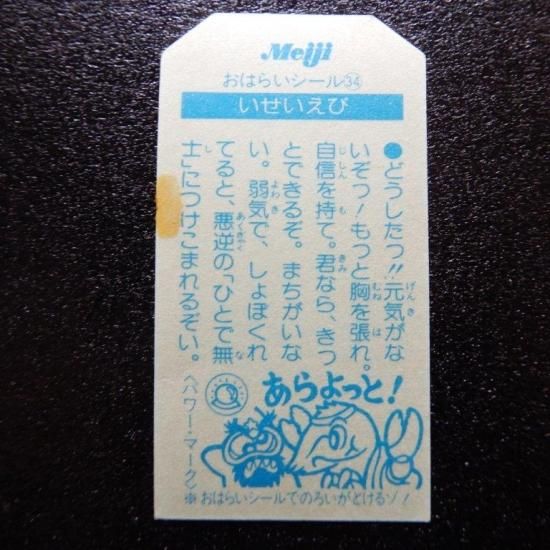 Meiji
おはらいシール㉞
いせいえび
●どうしたっ!!元気がな
いぞっ!もっと胸を張れ。
自信を持て。君なら、きっ
とできるぞ。まちがいな
い。弱気で、しょぼくれ
てると、悪逆の「ひとで無
士」につけこまれるぞい。
あらよっと!
〈パワー・マーク〉
※おはらいシールでのろいがとけるゾ!